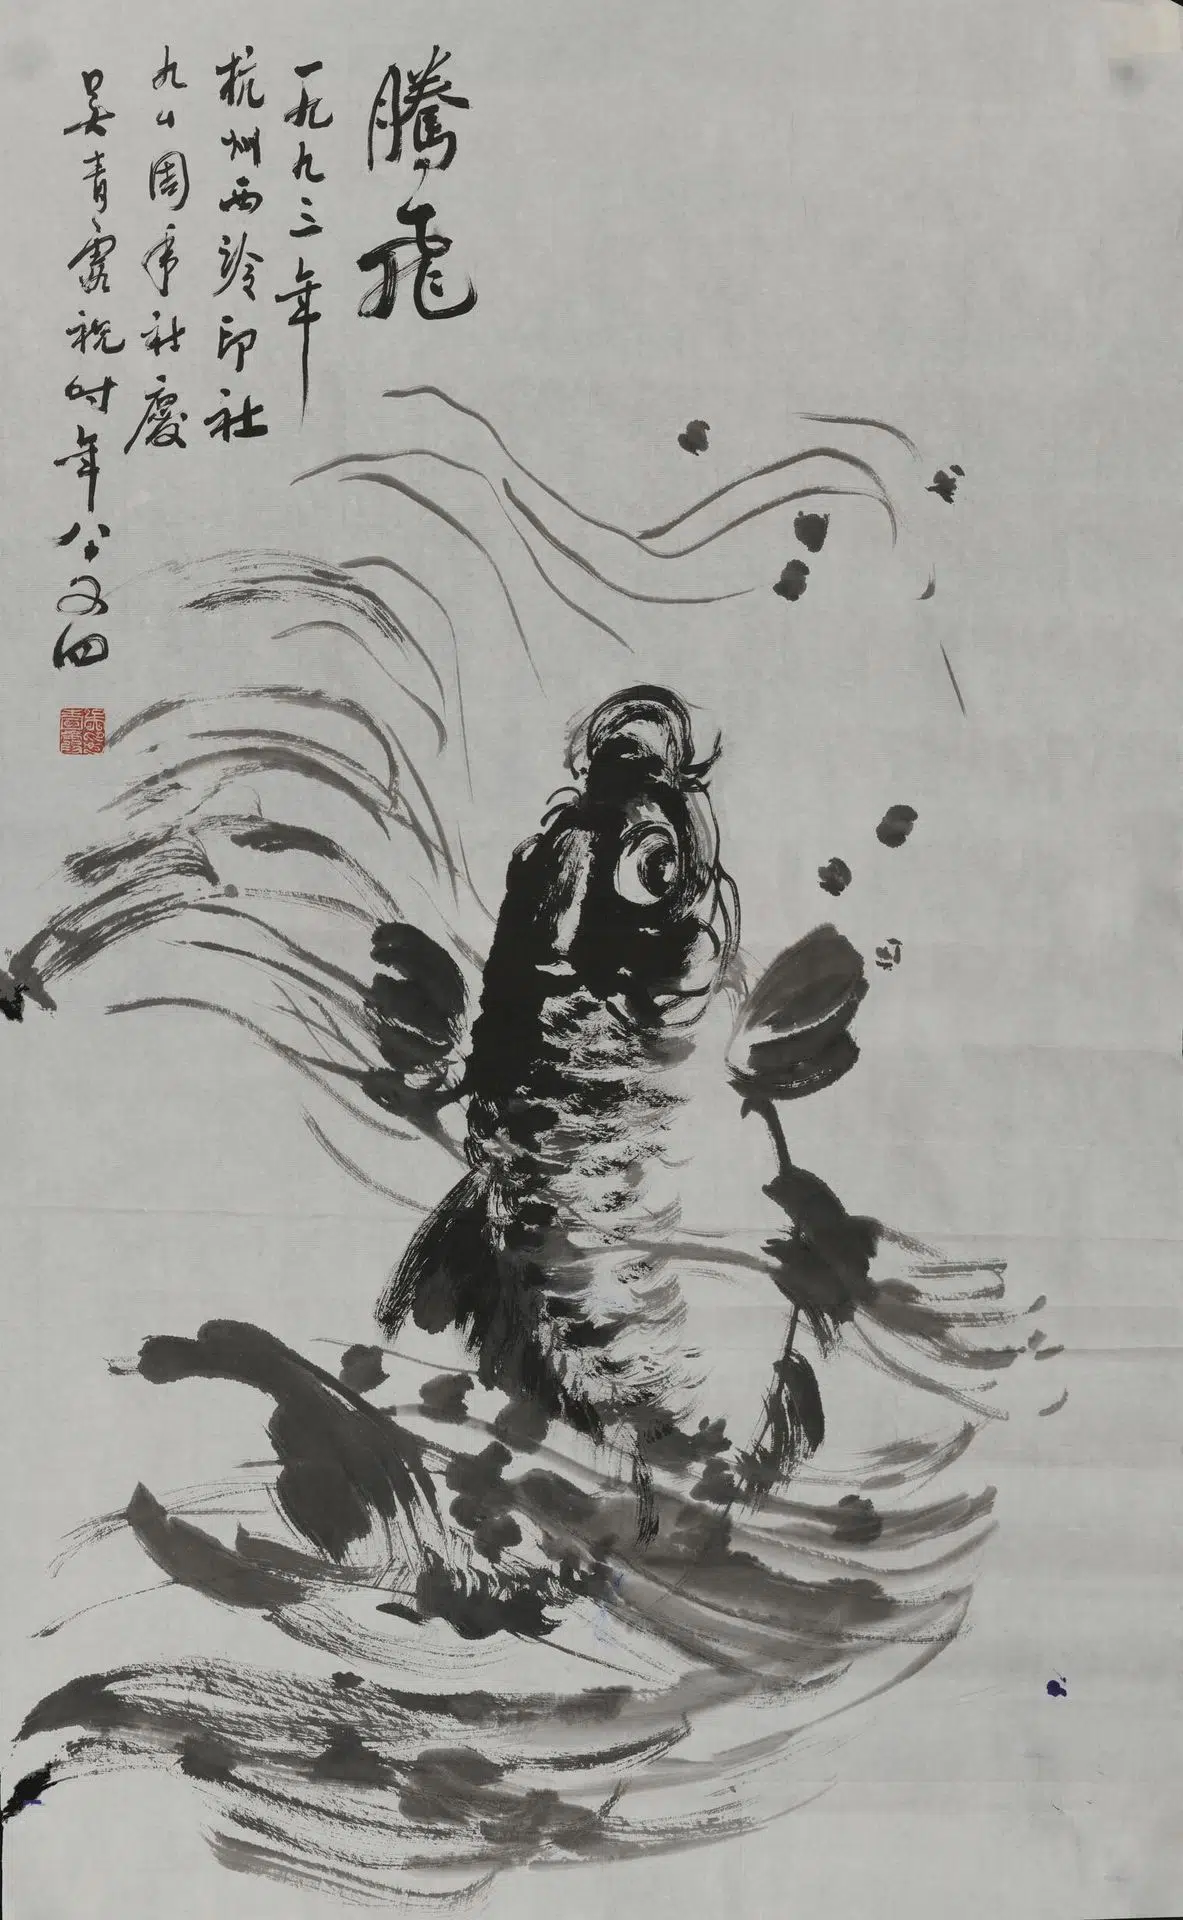 騰飛
一九九三年
杭州西泠印社
九十周年社慶
吴青霞祝时年八十又四